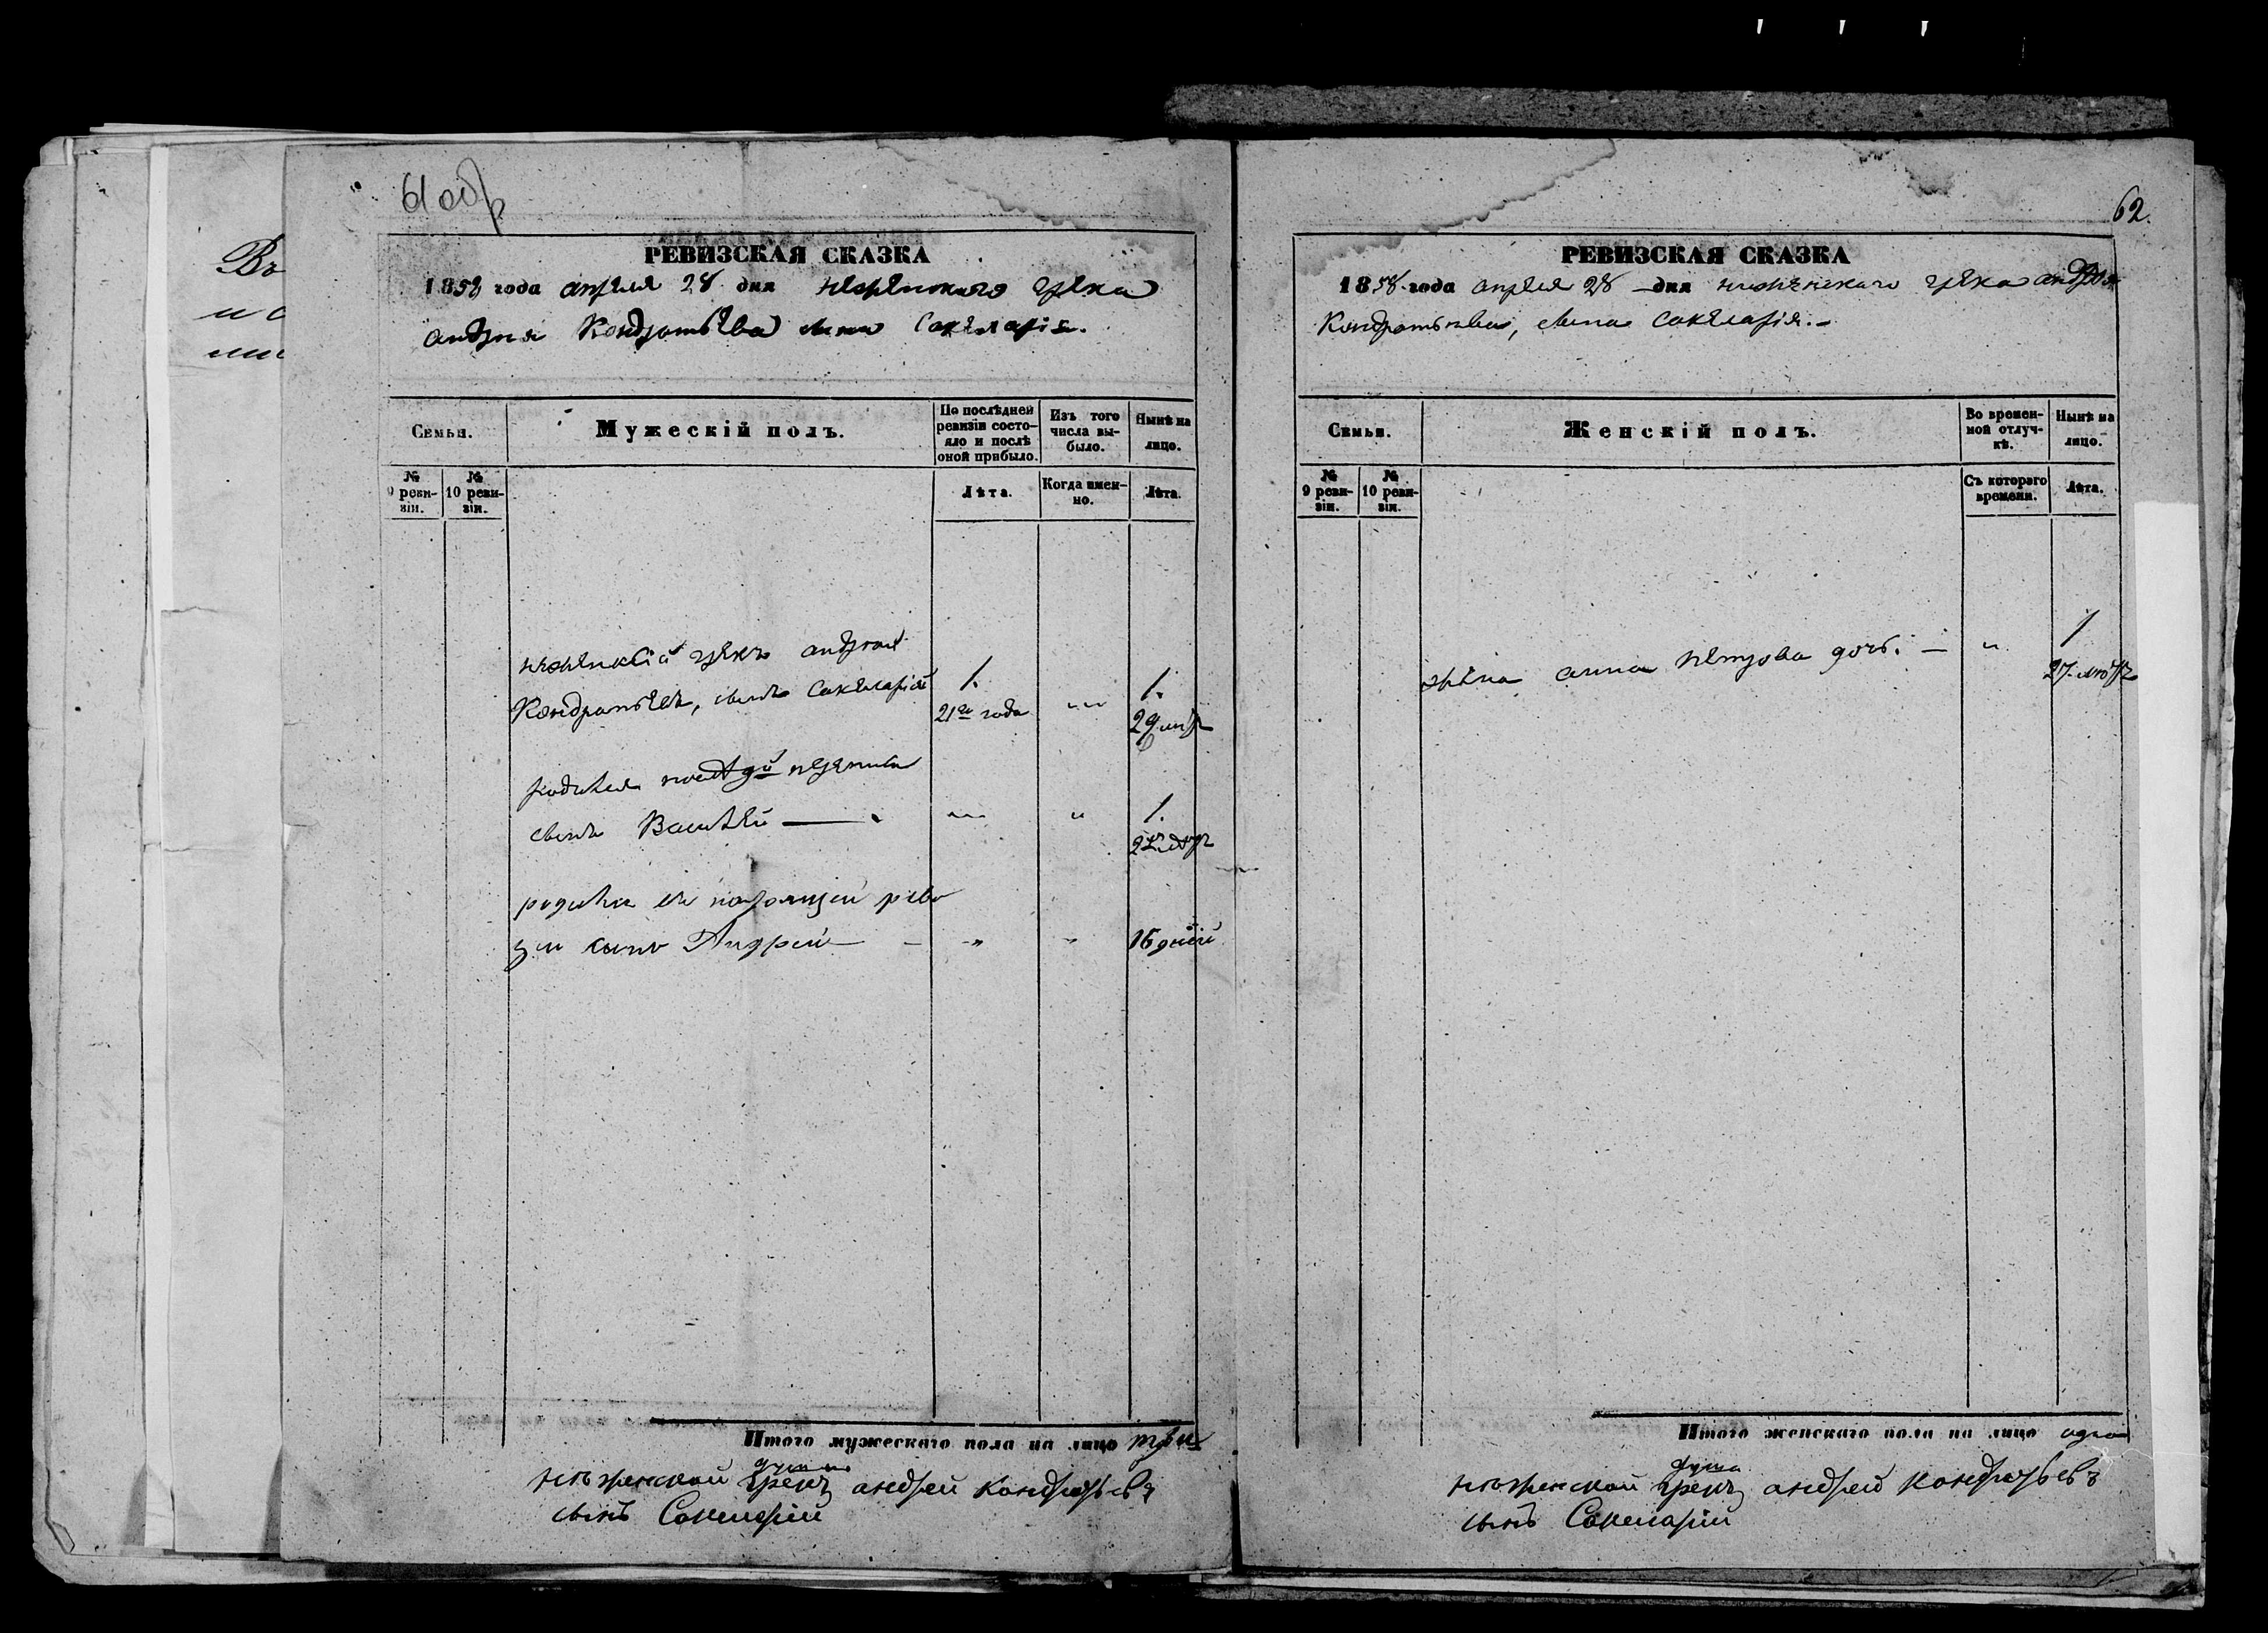 61 об
РЕВИЗСКАЯ СКАЗКА
1858 года апреля 28 дня неженского грека
андрея Кондратьева сына Сакеларія.
Семьи.
Мужескій полъ.
По послѣдней
ревизіи состо-
яло и послѣ
оной прибыло.
Изъ того
числа вы-
было.
Нынѣ на
лицо.
№
9 реви-
зіи.
№
10 реви-
зіи.
Лѣта.
Когда имен-
но.
Лѣта.
неженскій грекъ андрей
Кондратьевъ, сынъ Сакеларій
1.
1.
21го года
29
родился после
сынъ Василій
1.
родился
зіи сынъ Андрей
16 дней
Итого мужескаго пола на лицо три
души
нѣженской грекъ андрей кондратьевъ
сынъ Сакеларій
Въ
и с
62.
РЕВИЗСКАЯ СКАЗКА
1858 года апреля 28 дня неженскаго грека андрея
Кондратьева, сына Сакеларія.
Семьи.
Женскій полъ.
Во времен-
ной отлуч-
кѣ.
Нынѣ на
лицо.
№
9 реви-
зіи.
№
10 реви-
зіи.
Съ котораго
времени.
Лѣта.
1
жена анна петрова дочь.
27
Итого женскаго пола на лицо одна
душа
нѣженской грекъ андрей кондратьевъ
сынъ Сакеларій